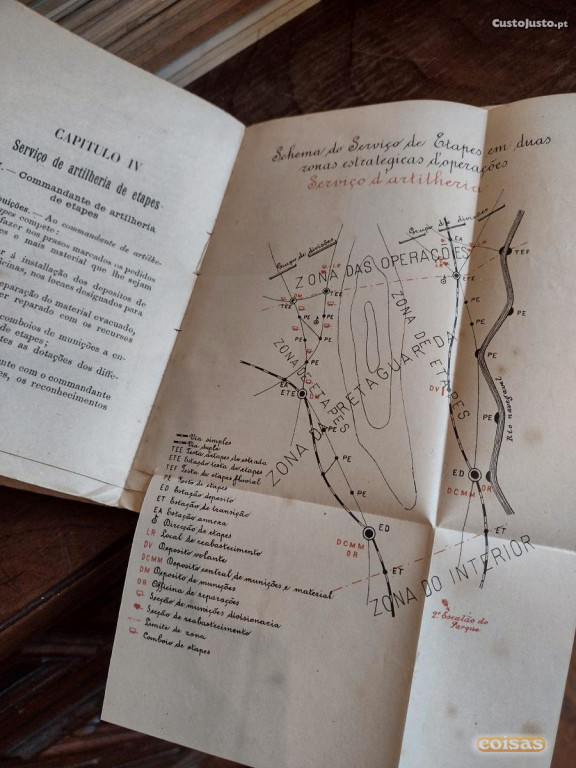 CustoJusto.pt
CAPITULO IV
Serviço de artilheria de etapes
— Commandante de artilheria
de etapes
— Ao commandante de artilhe-
compete:
fazer nos prasos marcados os pedidos
e mais material que lhe sejam
á installação dos depositos de
nos locaes designados para
do material evacuado,
reparado com os recursos
comboios de munições a en-
de etapes;
as dotações dos diffe-
com o commandante
os reconhecimentos
Schema do Serviço de Etapes em duas
zonas estrategicas d'operações
Serviço d'artilheria
Grupo de divisões
Grupo de divisões
ZONA DAS OPERAÇÕES
ZONA DE ETAPES
ZONA DE ETAPES
ZONA DA RETAGUARDA
ZONA DO INTERIOR
Rio navegavel
EA
ETE
TEE
TEE
TEF
PE
PE
PE
PE
PE
PE
DV
EA
ETE
DM
PE
PE
PE
PE
ED
DCMM
OR
ED
DCMM
OR
ET
ET
2º Escalão do
Parque
Via simples
Via dupla
TEE Testa d'etapes de estrada
ETE Estação testa de etapes
TEF Testa de etapes fluvial
PE Posto de etapes
ED Estação deposito
ET Estação de transição
EA Estação annexa
Direcção de etapes
LR Local de reabastecimento
DV Deposito volante
DCMM Deposito central de munições e material
DM Deposito de munições
OR Officina de reparações
Secção de munições divisionaria
Secção de reabastecimento
Limite de zona
Comboio de etapes
coisas